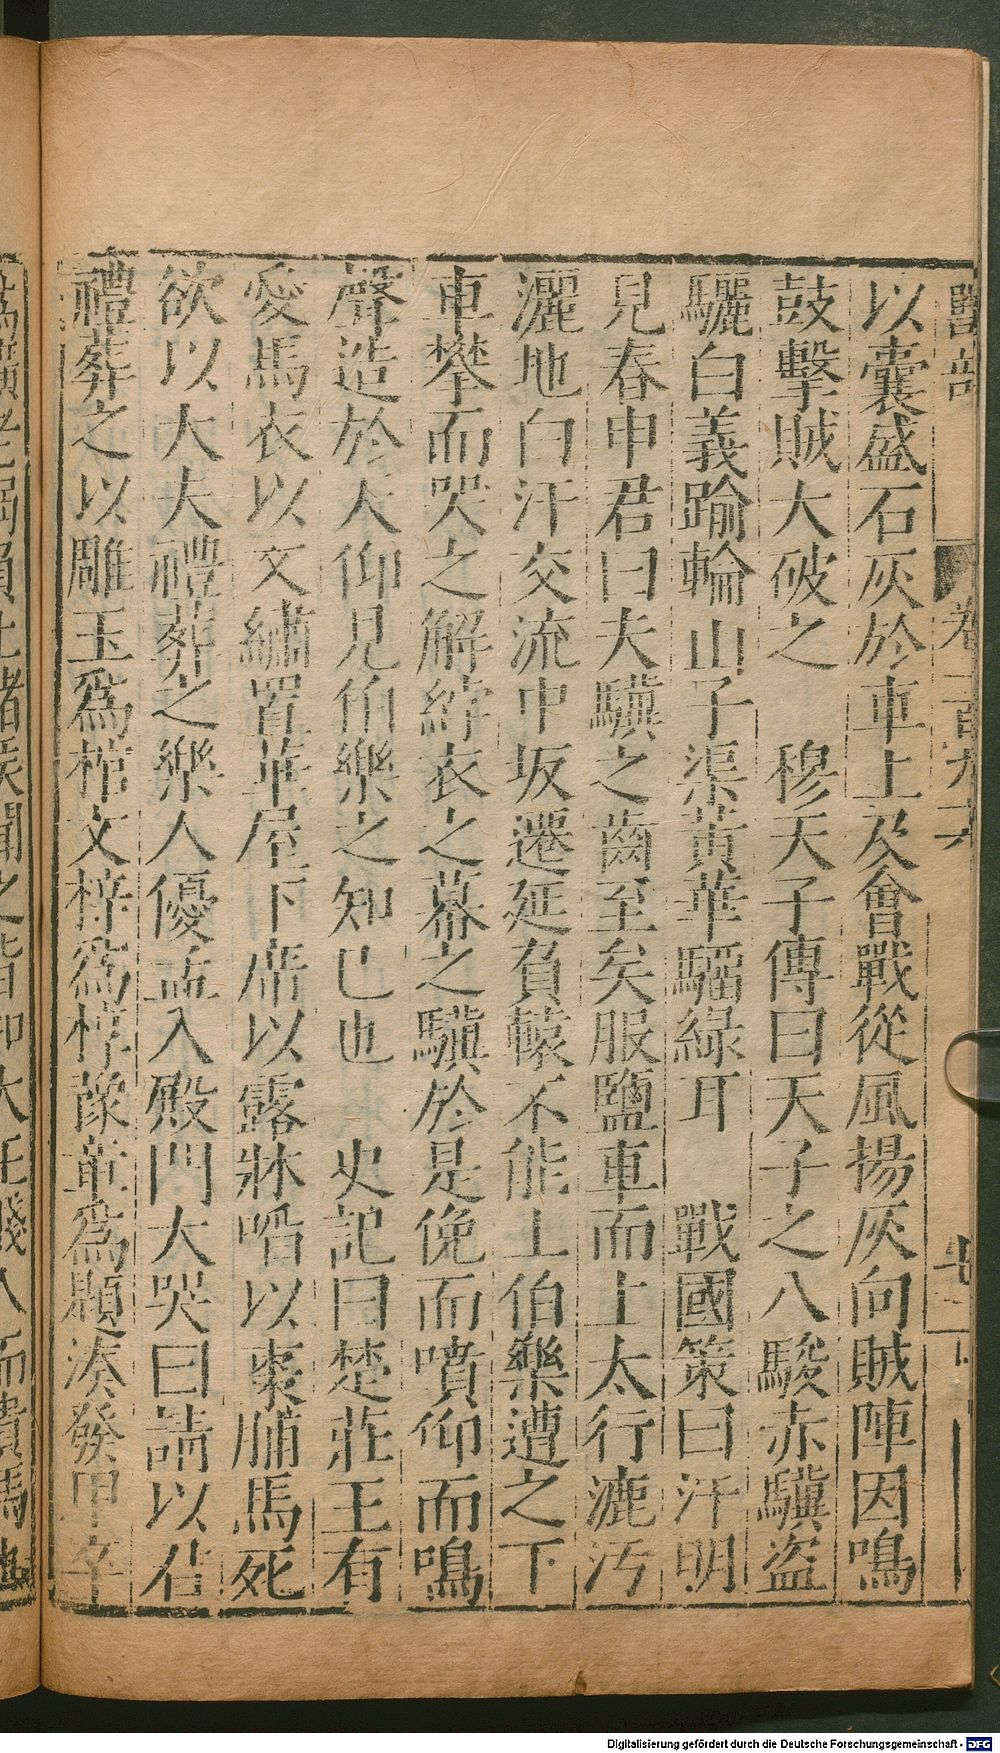 獸部 卷一百九十六
以囊盛石灰於車上及會戰從風揚灰向賊陣因鳴
鼓擊賊大破之 穆天子傳曰天子之八駿赤驥盜
驪白義踰輪山子渠黃華騮綠耳 戰國策曰汗明
見春申君曰夫驥之齒至矣服鹽車而上太行漉汚
灑地白汗交流中坂遷延負轅不能上伯樂遭之下
車攀而哭之解紵衣之冪之驥於是俛而噴仰而鳴
聲造於天仰見伯樂之知已也 史記曰楚莊王有
愛馬衣以文繡置華屋下席以露牀啗以棗脯馬死
欲以大夫禮葬之樂人優孟入殿門大哭曰請以君
禮葬之以雕玉爲棺文梓爲椁豫章爲題湊發甲卒
Digitalisierung gefördert durch die Deutsche Forschungsgemeinschaft - DFG